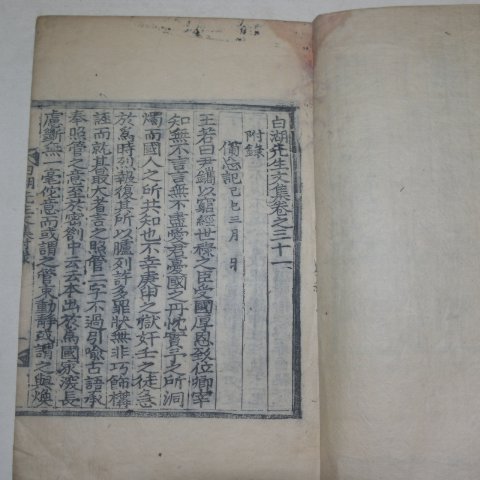 白湖先生文集卷之三十二
附錄
備忘記己巳三月 日
王若曰尹鑴以窮經世祿之臣受國厚恩致位卿宰
知無不言言無不盡愛君憂國之丹忱實予之所洞
燭而國人之所共知也不幸庚申之獄奸壬之徒急
於爲時烈報復其所以臚列許多罪狀無非巧飾構
誣而就其最大者言之照管二字不過引喩古語承
奉照管之意至於密劄中云云本出於爲國家深長
慮斷無一毫佗意而或謂之管束動靜或謂之與煥